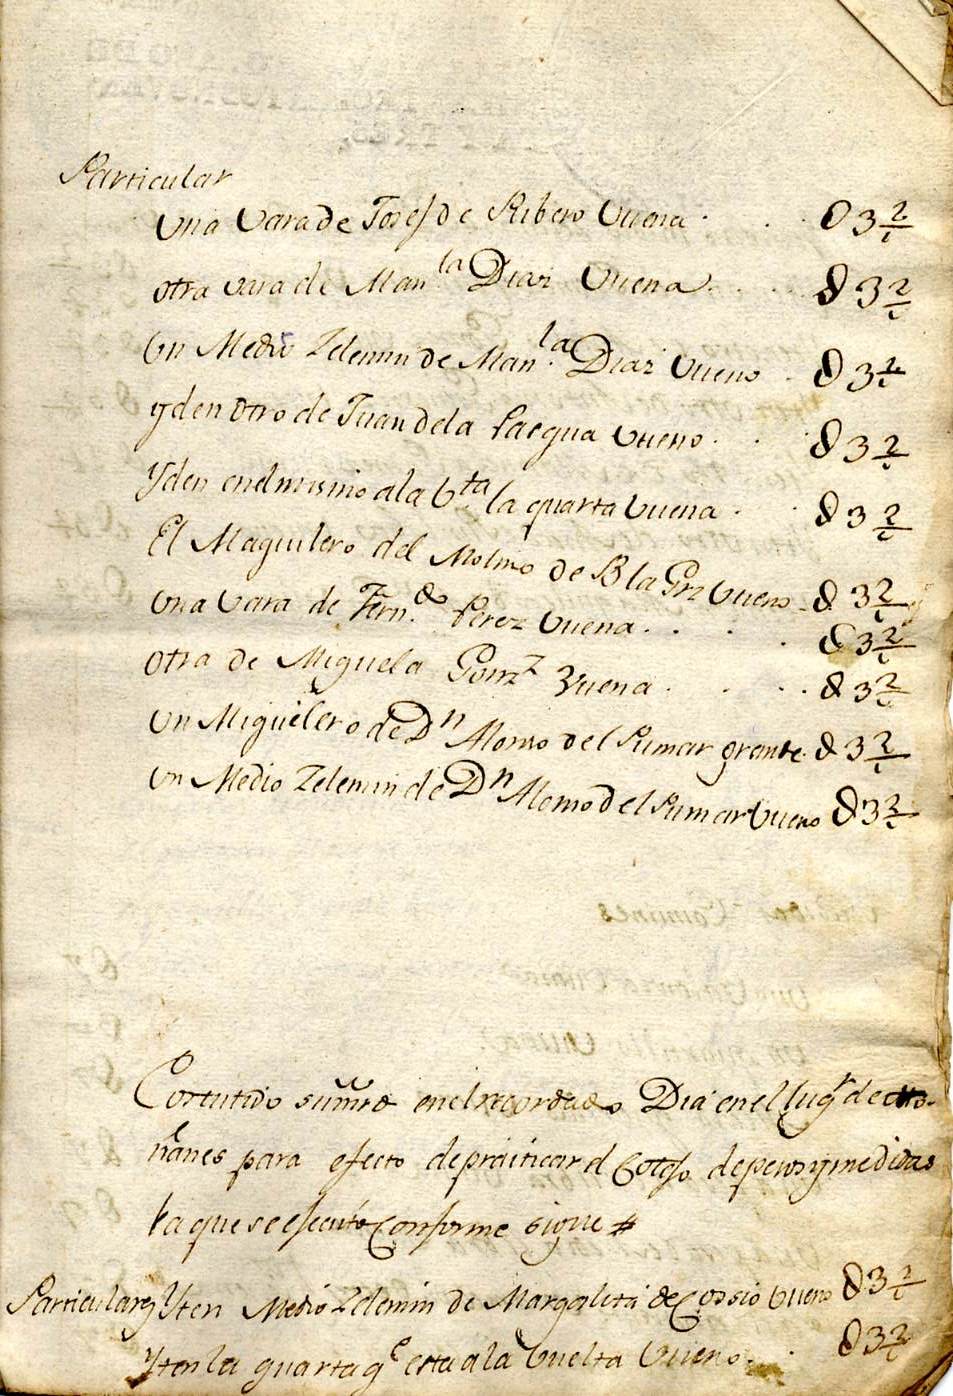 Particular
Una Vara de Josef de Ribero Vuena . . 03 2/c
otra vara de Man.la Diaz Vuena . . . 03 2/c
Un Medio Zelemin de Man.la Diaz Vueno . 03 2/c
yden otro de Juan dela Paegua Vueno . . 03 2/c
Yden enelmismo ala bta la quarta Vuena . . 03 2/c
El Maquilero del Molino de Bla Grz Vueno . 03 2/c
Una Vara de Fern.do Perez Vuena . . . . 03 2/c
otra de Miguela Gonz Vuena . . . . 03 2/c
Un Miguilero de Dn Alonso del Pumar grante . 03 2/c
Un Medio Zelemin de Dn Alonso del Pumar Vueno 03 2/c
su mrd enel recordado Dia en el lugr de
nanes para efecto de practicar el Cotejo depesos ymedidas
la que se ejecuto Conforme sigue #
Particulares Yten Medio Zelemin de Margalita de Cossio Vueno 03 2/c
Yten la quarta qe esta ala Vuelta Vueno . . 03 2/c